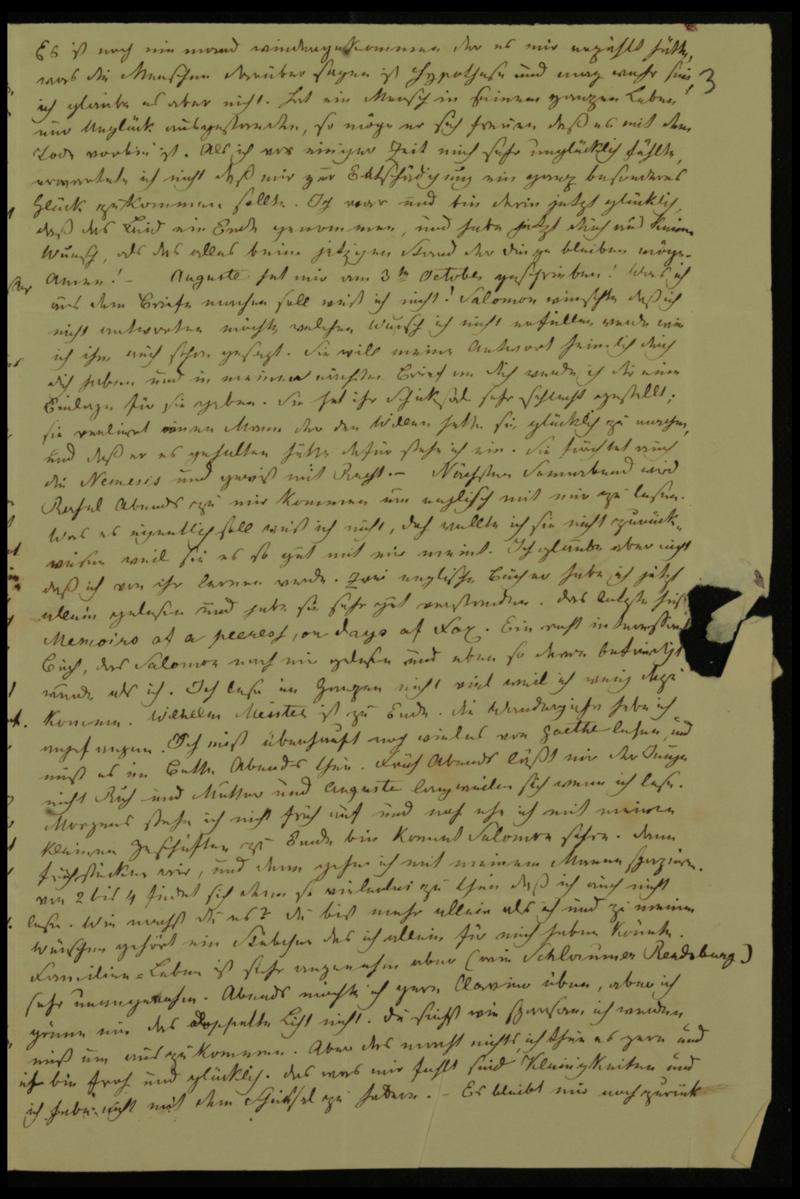 Es ist noch niemand wiedergekommen der es mir erzählt hätte,
was die Menschen darüber sagen ist Hypothese und mag wahr sein, 3
ich glaube es aber nicht. Hat ein Mensch in seinem ganzen Leben
nur Unglück ausgestanden, so möge er sich freuen daß es mit dem
Tode vorbei ist. Als ich vor einiger Zeit mich sehr unglücklich fühlte,
erwartete ich nicht daß mir zur Entschädigung ein ganz besonderes
Glück zukommen sollte. Ich war und bin darin jetzt glücklich
daß das Leid ein Ende genommen, und habe jetzt durchaus keinen
Wunsch, als das alles beim jetzigen Stand der Dinge bleiben möge.
Amen! – Auguste hat mir am 3ten October geschrieben! Was ich
aus dem Briefe machen soll weiß ich nicht! Salomon wünschte daß ich
nicht antworten möchte welchen Wunsch ich nicht erfüllen werde wie
ich ihm auch schon gesagt. Sie will meine Antwort heimlich durch
dich haben und in meinem nächsten Brief an dich werde ich dir eine
Einlage für sie geben. Sie hat ihr Schicksal sehr schlecht gestellt;
sie verliert einen Mann der den Willen hatte sie glücklich zu machen,
und daß er es gehalten hätte dafür stehe ich ein. Sie fürchtet auch
die Nemesis und gewiß mit Recht. – Nächsten Sonnabend wird
Rahel Abends zu mir kommen um englisch mit mir zu lesen.
Was es eigentlich soll weiß ich nicht, doch wollte ich sie nicht zurück-
weisen weil sie es so gut mit mir meint. Ich glaube aber nicht
daß ich von ihr lernen werde. Zwei englische Bücher habe ich jetzt
allein gelesen und habe sie sehr gut verstanden. Das letzte hieß
Memoirs of a peeress, or days of Fox. Ein recht interessant
Buch, das Salomon nach mir gelesen und eben so davon befriedigt
wurde als ich. Ich lese im Ganzen nicht viel weil ich wenig dazu
komme. Wilhelm Meister ist zu Ende. Die Wanderjahre habe ich
angefangen. Ich muß überhaupt noch vieles von Goethe lesen, und
muß es im Bette Abends thun. Früh Abends läßt mir der Junge
nicht Ruh und Mutter und Auguste langweilen sich wenn ich lese.
Morgens stehe ich nicht früh auf und noch ehe ich mit meinen
kleinen Geschäften zu Ende bin kommt Salomon schon. Dann
frühstücken wir, und dann gehe ich mit meinem Manne spazieren.
Von 2 bis 4 findet sich denn so vielerlei zu thun daß ich auch nicht
lese. Wie machst du es? Du bist mehr allein als ich und zu meinen
Wünschen gehört ein Stübchen das ich allein für mich haben könnte.
Familien-Leben ist sehr angenehm aber (wie Schlaumer Rendsburg)
sehr unangenehm. Abends möchte ich gern Clavier üben, aber ich
gönne mir das doppelte Licht nicht. Du siehst wie sparsam ich werden
muß um auszukommen. Aber das macht nichts, ich thue es gern und
ich bin froh und glücklich. Das was mir fehlt sind Kleinigkeiten und
ich habe nicht mit dem Schicksal zu hadern. – Es bleibt mir noch zurück